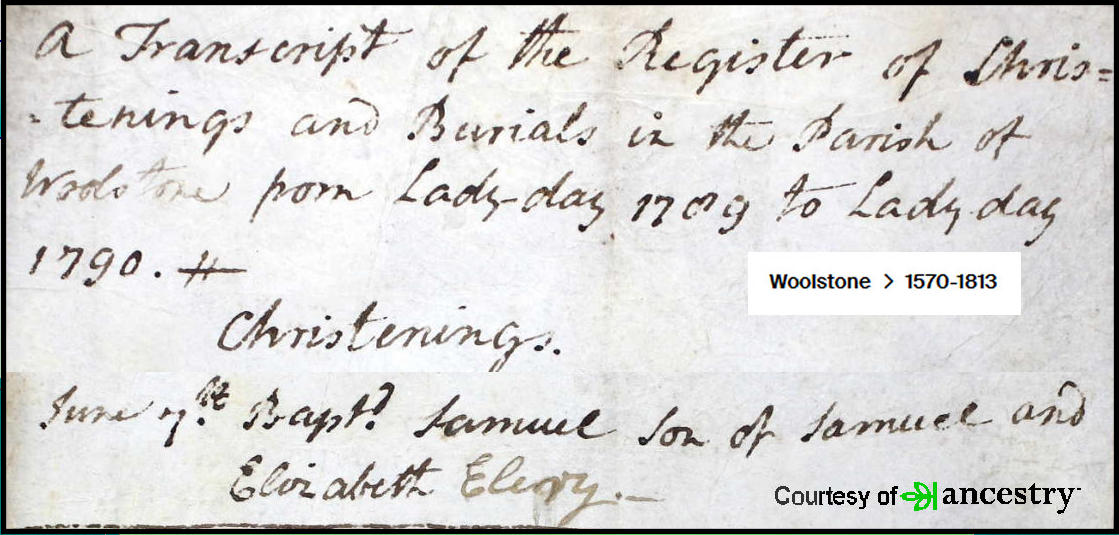 A Transcript of the Register of Chris=
-tenings and Burials in the Parish of
Woolstone from Lady-day 1789 to Lady day
1790. #
Woolstone > 1570-1813
Christenings.
June 7th Bapt.d Samuel Son of Samuel and
Elizabeth Elery.
Courtesy of ancestry